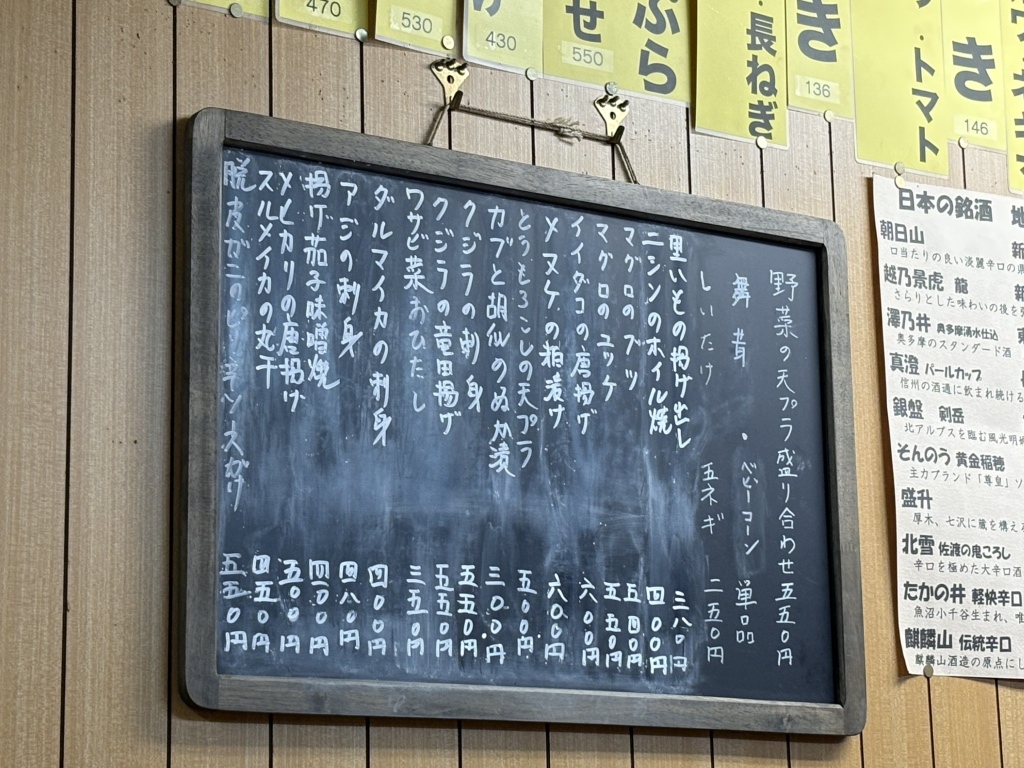 470
530
430
せ
550
ぷら
・長ねぎ
き
136
・トマト
き
146
野菜の天プラ盛り合わせ 五五〇円
舞茸 ・ベビーコーン 単品
しいたけ 玉ネギ 二五〇円
里いもの揚げ出し 三八〇円
ニシンのホイル焼 四〇〇円
マグロのブツ 五四〇円
マグロのユッケ 五五〇円
イイダコの唐揚げ 六〇〇円
メヌケの粕漬け 六〇〇円
とうもろこしの天プラ 五〇〇円
カブと胡瓜のぬか漬 三〇〇円
クジラの刺身 五五〇円
クジラの竜田揚げ 五五〇円
ワサビ菜おひたし 三五〇円
ダルマイカの刺身 四〇〇円
アジの刺身 四八〇円
揚げ茄子味噌焼 四二〇円
メヒカリの唐揚げ 五〇〇円
スルメイカの丸干 四五〇円
脱皮ガニのピリ辛ソースがけ 五五〇円
日本の銘酒 地
朝日山 新
口当たりの良い淡麗辛口の
越乃景虎 龍 新
さらりとした味わいの後を
澤乃井 奥多摩湧水仕込 東
奥多摩のスタンダード酒
真澄 パールカップ
信州の酒通に飲まれ続ける
銀盤 剣岳
北アルプスを臨む風光明
そんのう 黄金稲穂
主力ブランド「尊皇」ソ
盛升
厚木、七沢に蔵を構え
北雪 佐渡の鬼ころし
辛口を極めた大辛口酒
たかの井 軽快辛口
魚沼小千谷生まれ、唯
麒麟山 伝統辛口
麒麟山酒造の原点にし